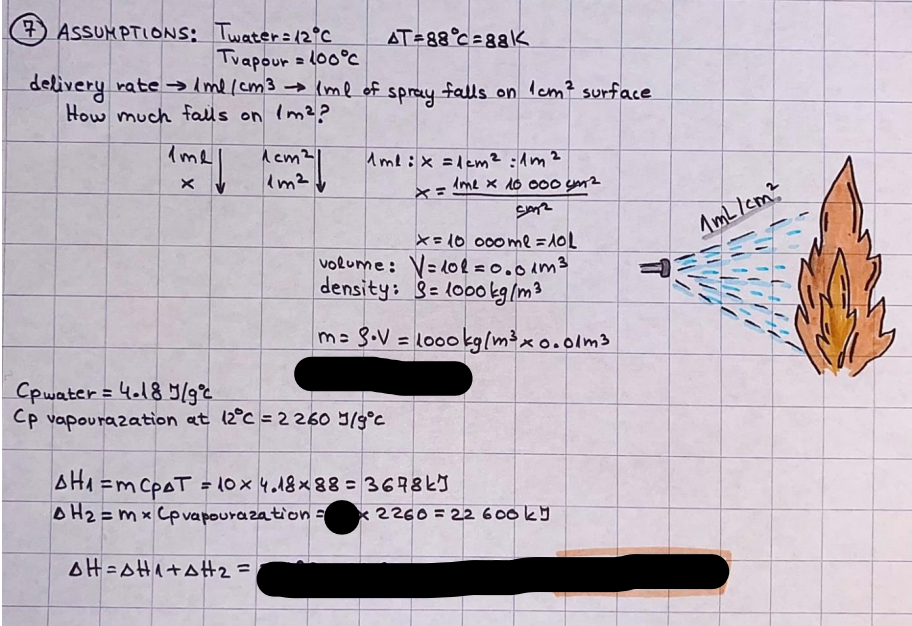 7 ASSUMPTIONS: Twater = 12°C ΔT = 88°C = 88K
Tvapour = 100°C
delivery rate → 1ml/cm3 → 1ml of spray falls on 1cm² surface
How much falls on 1m²?
1ml ↓ 1cm² ↓ 1ml : x = 1cm² : 1m²
x 1m² x = 1ml × 10 000 cm² / cm²
1mL/cm²
x = 10 000ml = 10L
volume: V = 10l = 0.01m³
density: ρ = 1000kg/m³
m = ρ·V = 1000kg/m³ × 0.01m³
Cpwater = 4.18 J/g°C
Cp vapourazation at 12°C = 2 260 J/g°C
ΔH1 = mCpΔT = 10 × 4.18 × 88 = 3678kJ
ΔH2 = m × Cpvapourazation = × 2260 = 22 600 kJ
ΔH = ΔH1 + ΔH2 =